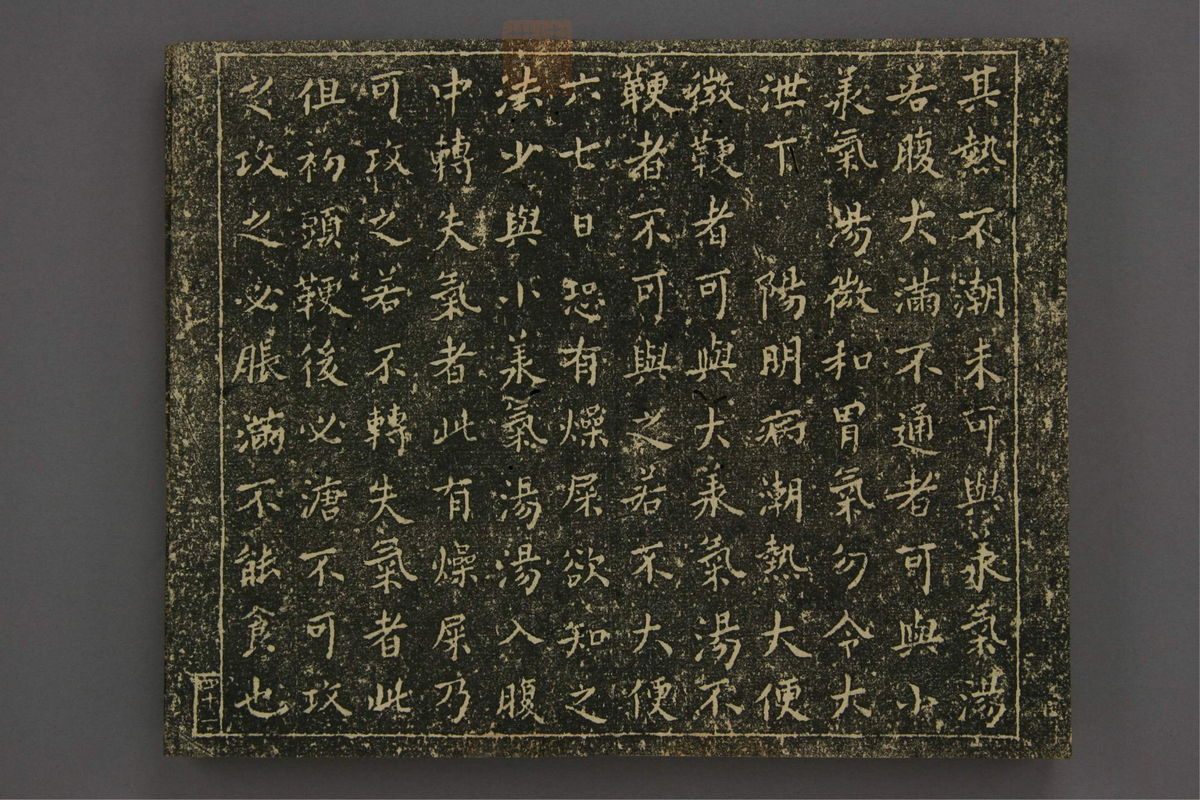 其熱不潮未可與承氣湯
若腹大滿不通者可與小
承氣湯微和胃氣勿令大
泄下 陽明病潮熱大便
微鞕者可與大承氣湯不
鞕者不可與之若不大便
六七日恐有燥屎欲知之
法少與小承氣湯湯入腹
中轉失氣者此有燥屎乃
可攻之若不轉失氣者此
但初頭鞕後必溏不可攻
之攻之必脹滿不能食也